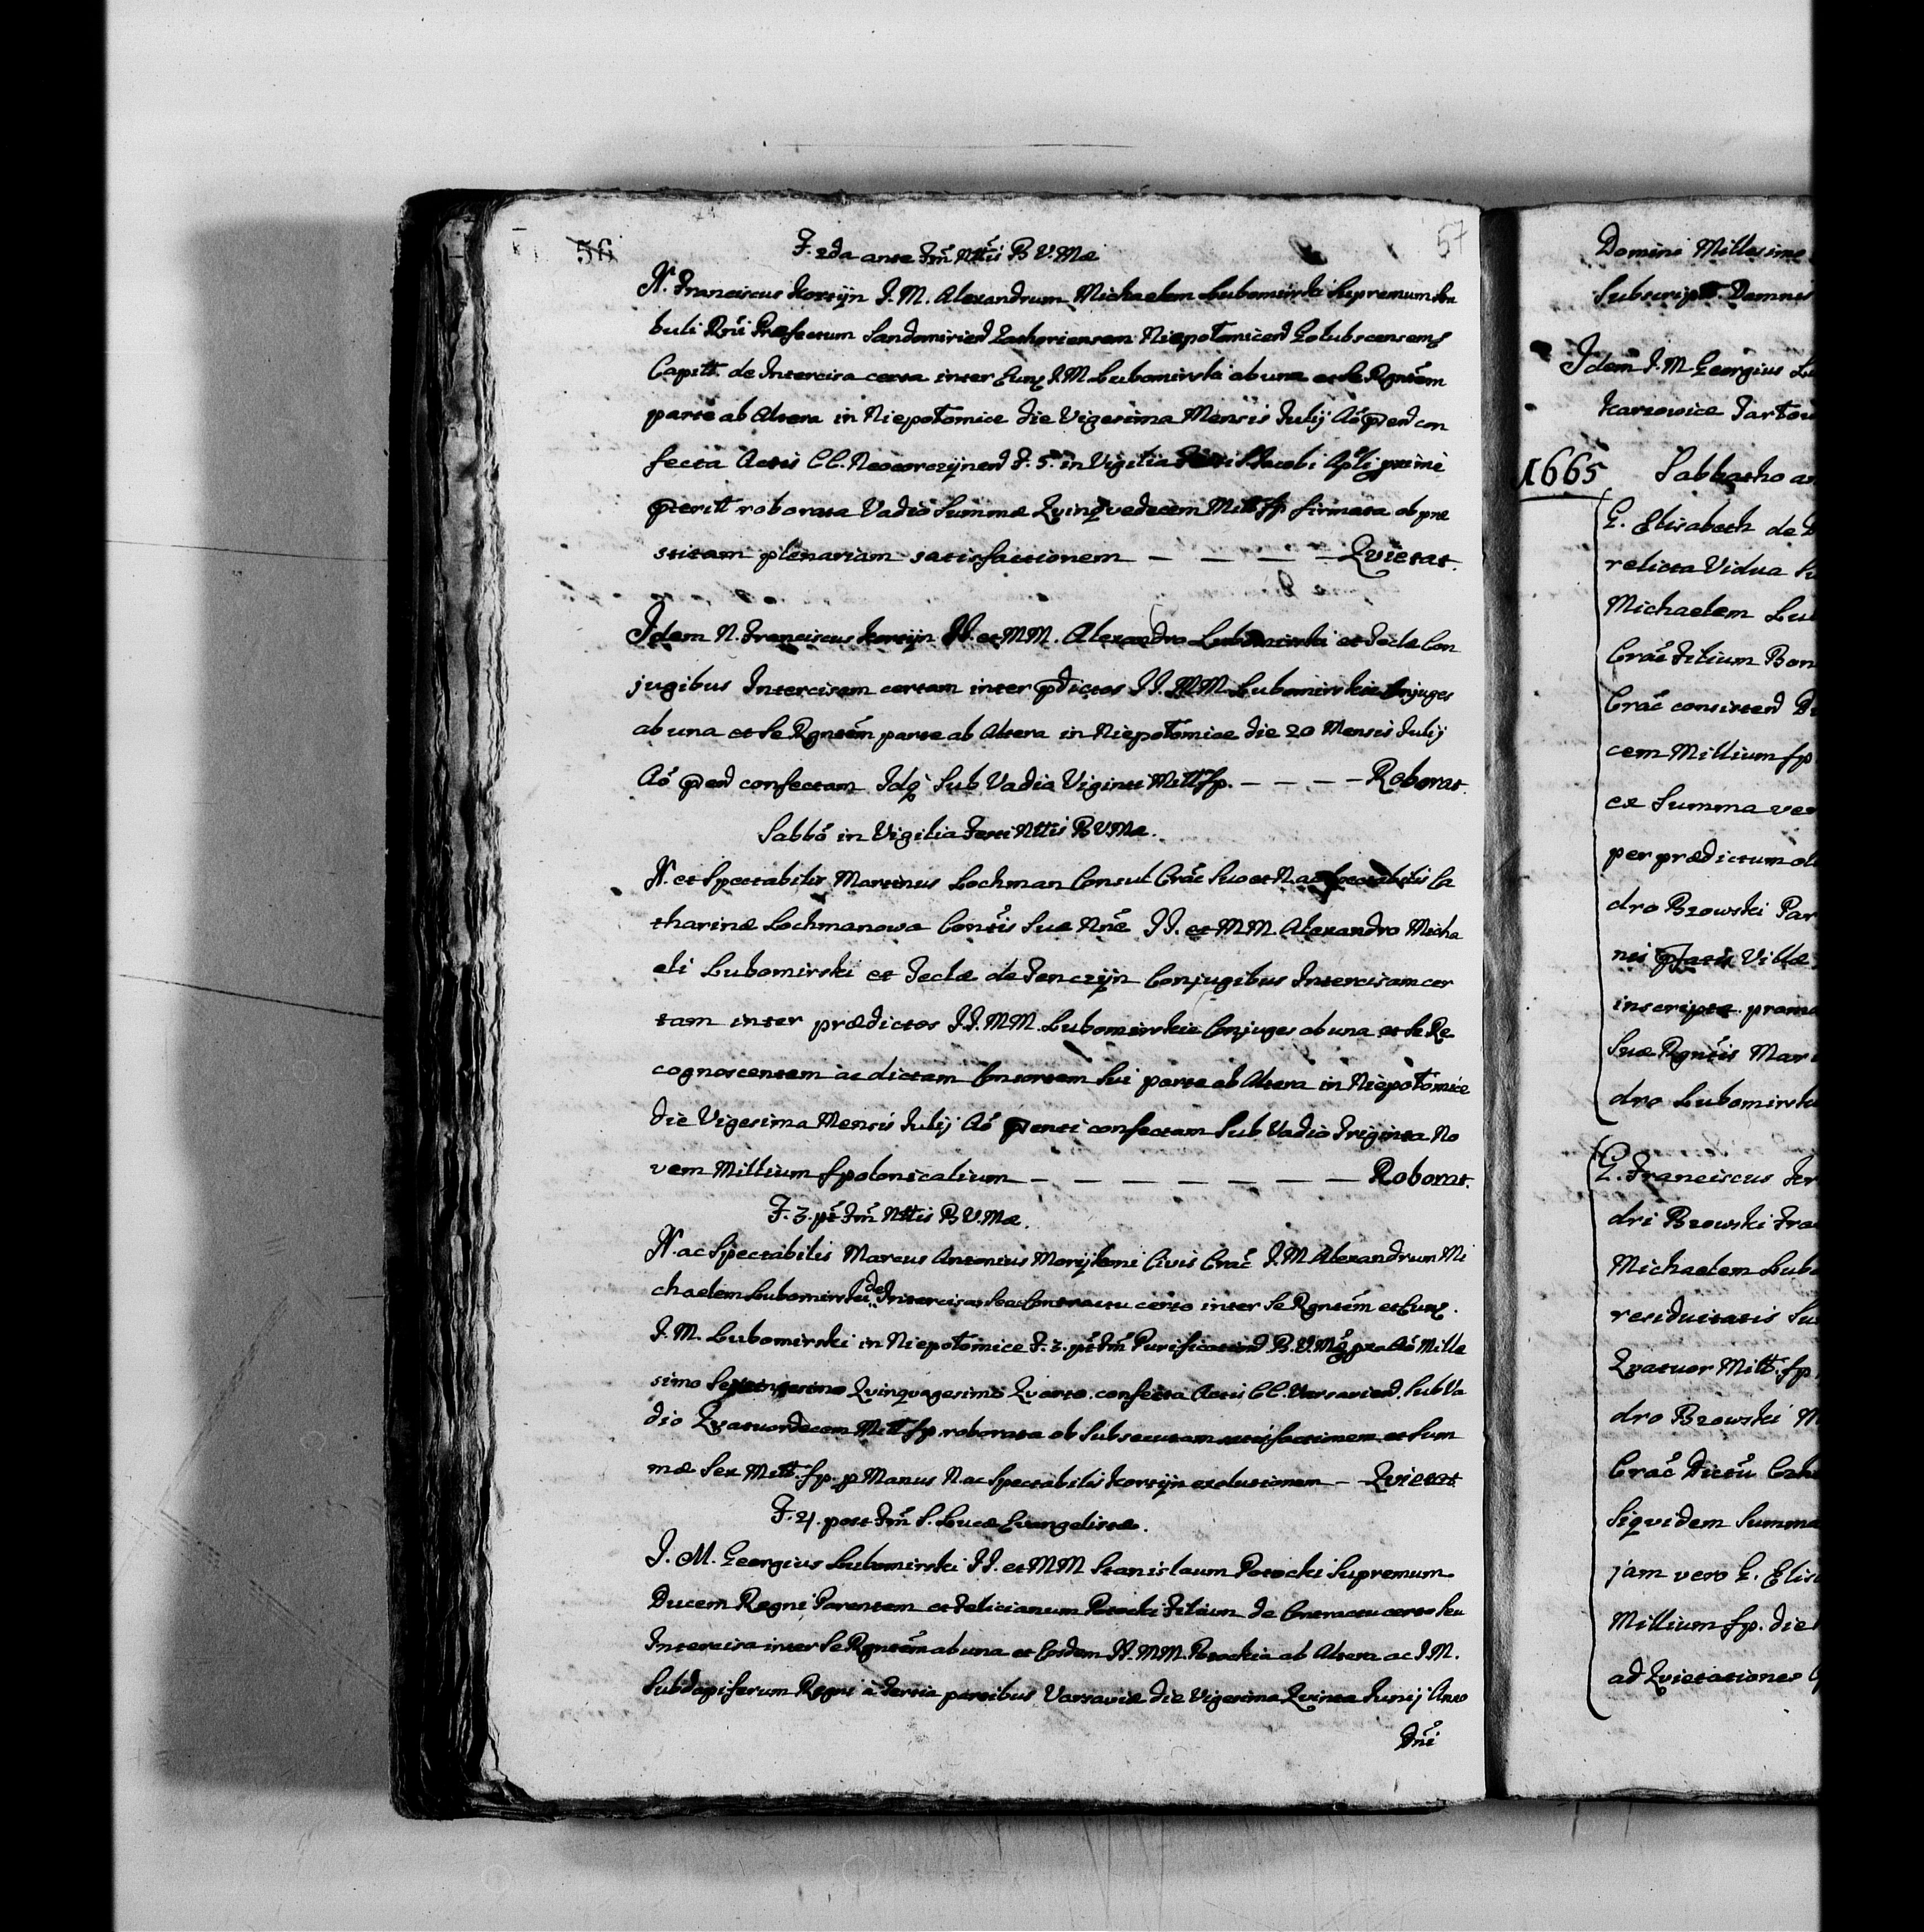 56
57
F. 2da ante Fm̃ Nttis B V. Mæ
N. Franciscus Kortijn J. M. Alexandrum Michaelem Lubomirski Supremum Sta
buli Rni Præfectum Sandomiriens Zathoriensem Niepołomicens Golubscensemq
Capitt. de Intercisa certa inter Eunq J M Lubomirski ab una et Se Rgntẽm
parte ab Altera in Niepołomice die Vigesima Mensis Julij Aõ pñs con
fecta Actis CC. Neocorczijnens F. 5. in Vigilia Festi S Jacobi Apli proxime
pterit roborata Vadio Summæ Qvinqvedecem Mill fp firmata ob præ
stitam plenariam satisfactionem — — — — Qvietat.
Idem N. Franciscus Kortijn JJ. et MM. Alexandro Lubomirski et Tecle Con
jugibus Intercisam certam inter pdictos JJ. MM Lubomirskie Conjuges
ab una et Se Rgntẽm parte ab Altera in Niepołomice die 20 Mensis Julij
Aõ pñs confectam Idq Sub Vadio Viginti Mill fp. — — — — Roborat.
Sabbõ in Vigilia Festi Nttis B V Mæ.
N. et Spectabilis Martinus Lochman Consul Crac̃ Suo et N. ac Spectabilis Ca
tharinæ Lochmanowa Contis Suæ Nñe JJ. et MM. Alexandro Micha
eli Lubomirski et Teclæ de Tenczijn Conjugibus Intercisam cer
tam inter prædictos JJ. MM. Lubomirskie Conjuges ab una et Se Re
cognoscentem ac dictam Consortem Sui parte ab Altera in Niepołomice
die Vigesima Mensis Julij Aõ pñti confectam Sub Vadio Triginta No
vem Millium fpolonicalium — — — — — — — — Roborat.
F. 3. pt Fm̃ Nttis B V. Mæ.
N. ac Spectabilis Marcus Antonius Morijkoni Civis Crac̃ J. M Alexandrum Mi
chaelem Lubomirski de Intercisa Seu Contractu certo inter Se Rgntẽm et Eunq.
J. M. Lubomirski in Niepołomice F. 3. pt Fm̃ Purificationis B. V. Mæ Aõ Mille
simo Qvinqvagesimo Qvarto confecta Actis CC. Varsaviens. Sub Va
dio Qvatuordecem Mill fp. roborata ob Subsecutam satisfactionem et Sum
mæ Sex Mill. fp. p Manus N. ac Spectabilis Kortijn exolutionem — Qvietat
F. 4. post Fm̃ S. Lucæ Evangelistæ.
J. M. Georgius Lubomirski JJ. et MM Stanislaum Potocki Supremum
Ducem Regni Parentem et Felicianum Potocki Filium de Contractu certo Seu
Intercisa inter Se Rgntẽm ab una et Eosdem JJ. MM. Potockie ab Altera ac J M.
Subdapiferum Regni a Tertia partibus Varsaviæ die Vigesima Qvinta Junij Anno
Dni
Domini Millesimo
Subscript Damnis
Idem J. M Georgius Lu
Karsowice
1665 Sabbatho a
G. Elisabeth de
relicta Vidua
Michaelem Lu
Crac̃ Filium
Crac̃ consistens
cem Millium fp
ex Summa ve
per prædictum ol
dro Brzowski Par
nis Villæ
inscriptæ
Suæ Rgntis Mar
dro Lubomirsk
G. Franciscus
dri Brzowski
Michaelem Lub
residuitatis Su
Qvatuor Mill. fp
dro Brzowski
Crac̃ Dictũ
Siqvidem Summa
jam vero G. Elis
Millium fp. die
ad Qvietationes